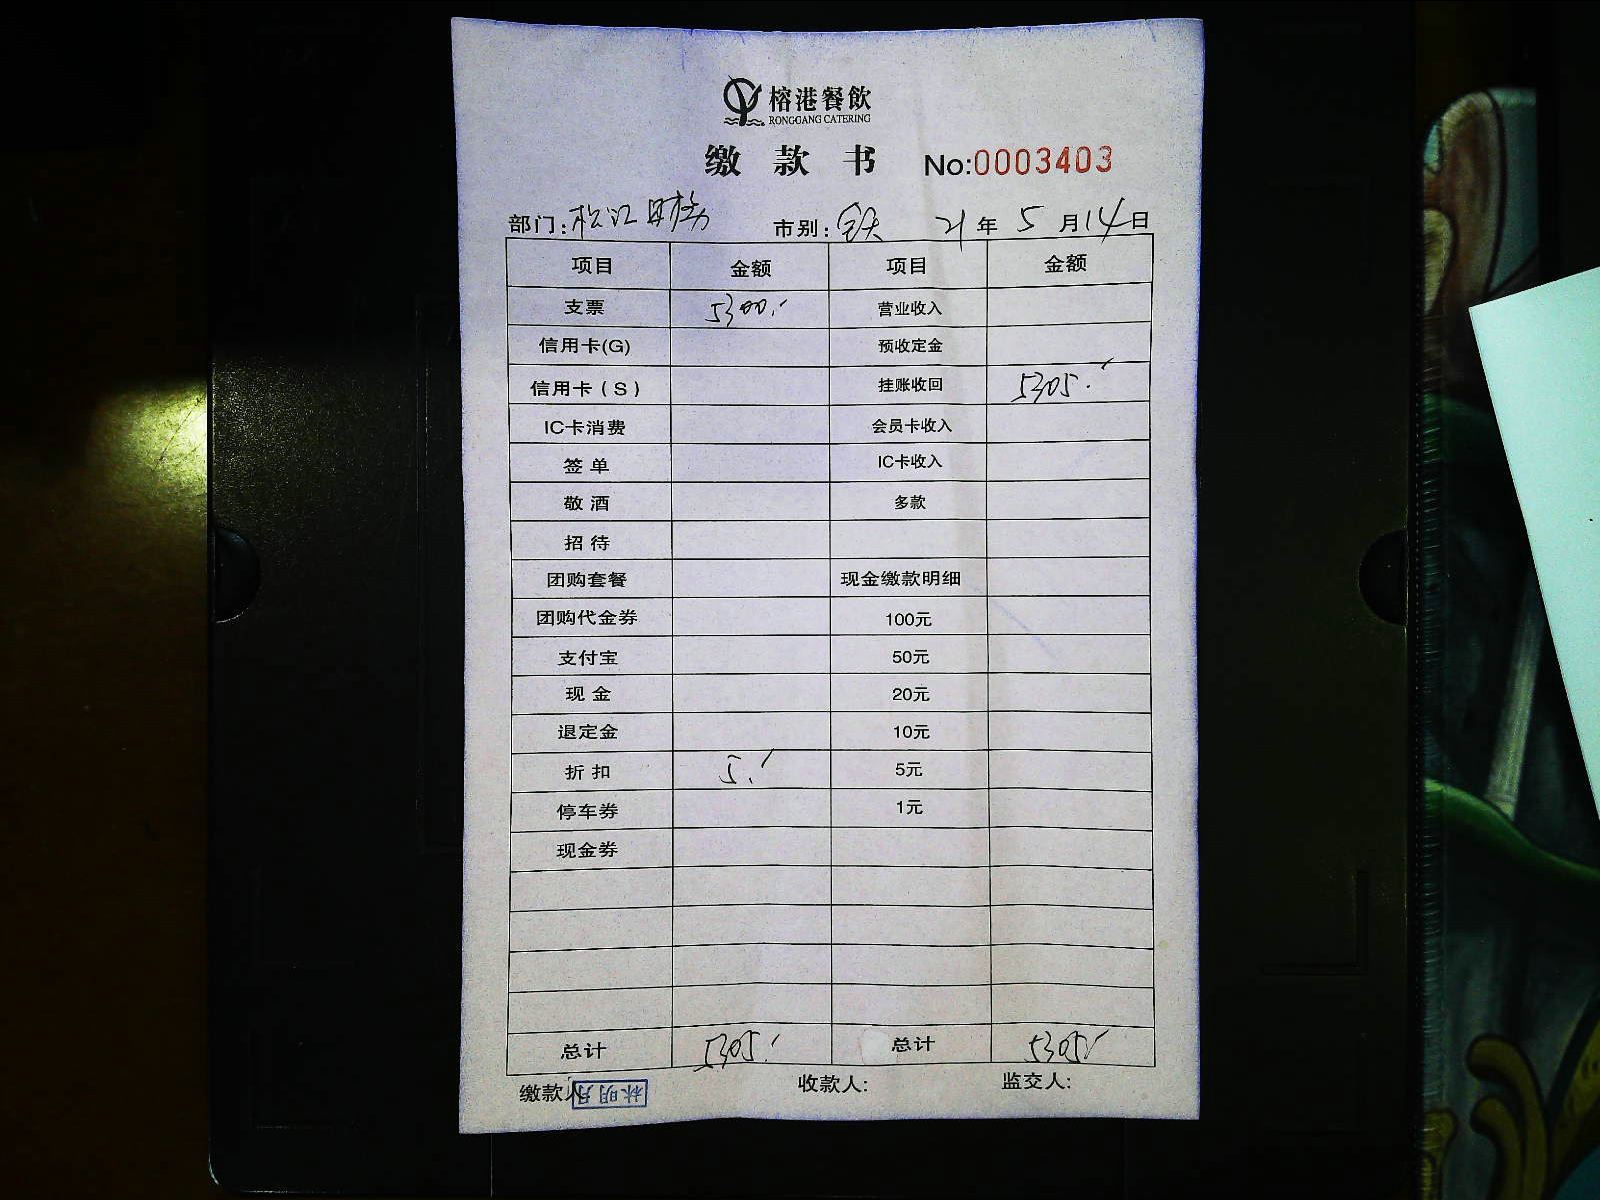 榕港餐飲
RONGGANG CATERING
缴 款 书 No:0003403
部门:松江财务 市别:全天 21年5月14日
项目 金额 项目 金额
支票 5300.- 营业收入
信用卡(G) 预收定金
信用卡(S) 挂账收回 5305.-
IC卡消费 会员卡收入
签 单 IC卡收入
敬 酒 多款
招 待
团购套餐 现金缴款明细
团购代金券 100元
支付宝 50元
现 金 20元
退定金 10元
折 扣 5.- 5元
停车券 1元
现金券
总计 5305.- 总计 5305.-
缴款人 林明月 收款人: 监交人: